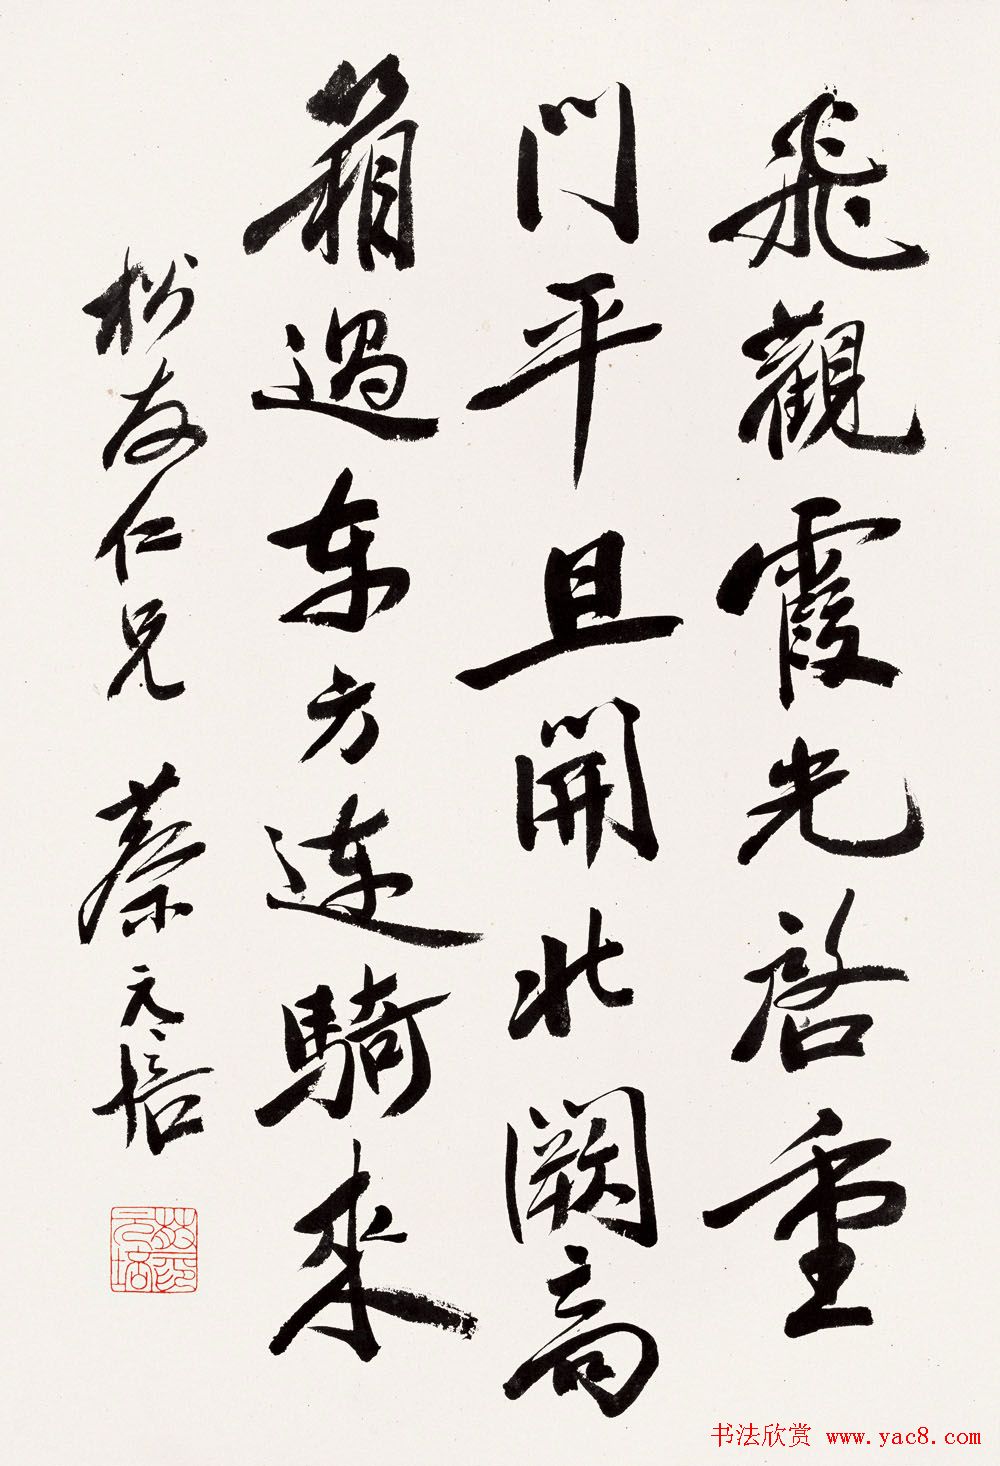 飛觀霞光啓重
門平旦開北闕高
箱過東方連騎來
松友仁兄 蔡元培
蔡印元培
书法欣赏 www.yac8.com